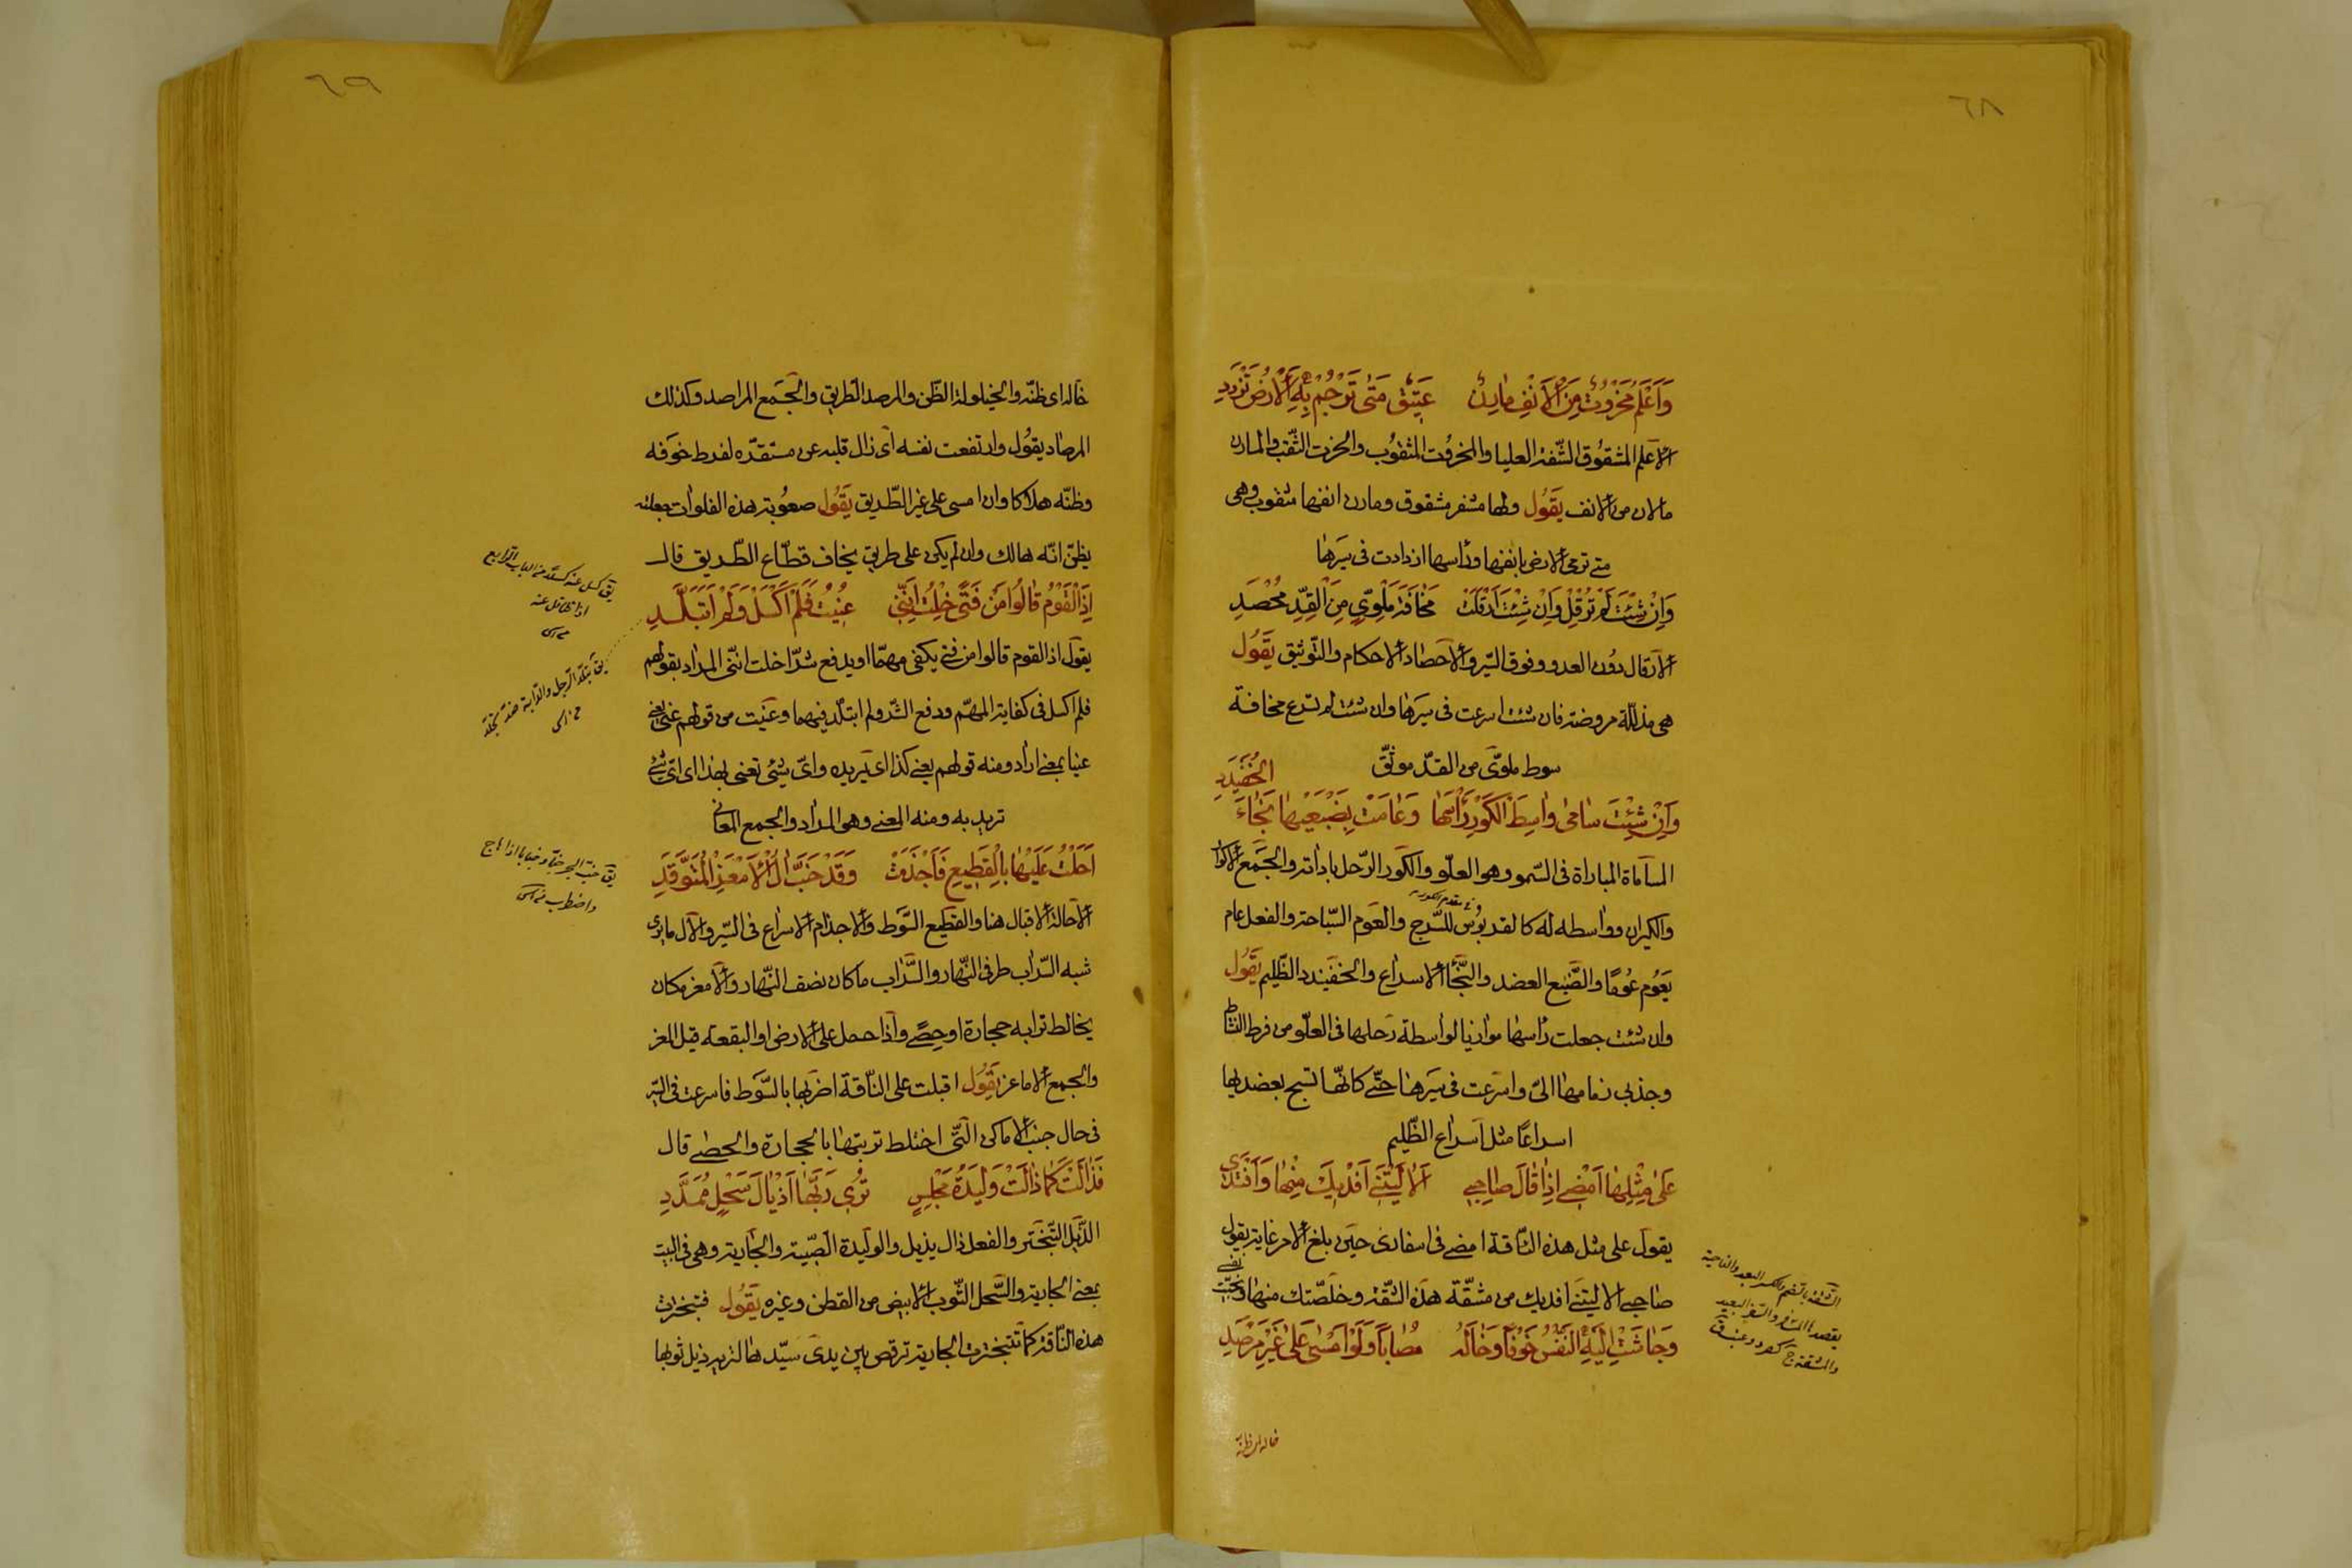 ٦٨
وَاَعْلَمُ مَخْرُوْتٌ مِنَ الْاَنْفِ مٰارِنٌ عَتِيْقٌ مَتٰى تَرْجُمْ بِهِ الْاَرْضَ تَزْدَدِ
الاعلم المشقوق الشّفة العليا والمخروت المثقوب والخرت الثّقب والمارن
مالان من الانف يَقُول ولها مشفر مشقوق ومارن انفها مثقوب وهى
متى ترمى الارض بانفها ورأسها ازدادت فى سيرها
وَاِنْ شِئْتَ لَمْ تُرْقِلْ وَاِنْ شِئْتَ اَرْقَلَتْ مَخٰافَةَ مَلْوِىٍّ مِنَ الْقِدِّ مُحْصَدِ
الارقال دون العدو وفوق السّير والاحصاد الاحكام والتّوثيق يَقُول
هى مذللّة مروضة فان شئت اسرعت فى سيرها وان شئت لم تسرع مخافة
سوط ملوىّ من القدّ موثّق
وَاِنْ شِئْتَ سٰامٰى وٰاسِطَ الْكَوْرِ رَأْسُهٰا وَعٰامَتْ بِضَبْعَيْهٰا نَجٰاءَ
الْخَفَيْدَدِ
المساماة المباراة فى السّمو وهو العلّو والكور الرّحل باداته والجمع الاكوار
والكيران وواسطه له كالقدبوس للسّرج والعوم السّباحة والفعل عام
يعوم عومًا والضّبع العضد والنّجأ الاسراع والخفيدد الظّليم يَقُول
وان شئت جعلت رأسها موازيا لواسطة رحلها فى العلّو من فرط النشاط
وجذبى زمامها الىّ واسرعت فى سيرها حتّى كانّها تسبح بعضديها
اسراعًا مثل اسراع الظّليم
عَلٰى مِثْلِهٰا اَمْضٖى اِذٰا قٰالَ صٰاحِبٖى اَلاٰ لَيْتَنٖى اَفْدٖيكَ مِنْهٰا وَاَفْتَدٖى
يقول على مثل هذه النّاقة امضى فى اسفارى حين بلغ الامر غايته يقول
صاحبى الا ليتنى افديك من مشقّة هذه الشقّة وخلّصتك منها ونجّيت
نفسى
وَجٰاشَتْ اِلَيْهِ النَّفْسُ خَوْفًا وَخٰالَهُ مُصٰابًا وَلَوْ اَمْسٰى عَلٰى غَيْرِ مَرْصَدِ
الشّقّة بالضّم والكسر البعد والناحية
يقصدها المسافر والسّفر البعيد
والمشقة ج كصرد وعنب ق
خاله اى ظنّه
٦٩
خاله اى ظنّه والخيلولة الظّن والمرصد الطريق والجمع المراصد وكذلك
المرصاد يقول وارتفعت نفسه اى زال قلبه عن مستقرّه لفرط خوفه
وظنّه هلاكا وان امسى على غير الطّريق يَقُول صعوبة هذه الفلوات جعلته
يظنّ انّه هالك وان لم يكن على طريق يخاف قطّاع الطّريق قال
اِذَا الْقَوْمُ قٰالُوا مَنْ فَتًى خِلْتُ اِنَّنٖى عُنٖيتُ فَلَمْ اَكْسَلْ وَلَمْ اَتَبَلَّدِ
يقول اذا القوم قالوا من فتى يكفى مهمّا او يدفع شرّا خلت انّنى المراد بقولهم
فلم اكسل فى كفاية المهمّ ودفع الشّر ولم اتبلّد فيهما وعنيت من قولهم عنى يعنى
عنيا بمعنى اراد ومنه قولهم يعنى كذا اى يريده واىّ شئ تعنى بهذا اى اىّ شئ
تريد به ومنه المعنى وهو المراد والجمع المعانى
اَحَلْتُ عَلَيْهٰا بِالْقَطٖيعِ فَاَجْذَمَتْ وَقَدْ خَبَّ اٰلُ الْاَمْعَزِ الْمُتَوَقِّدِ
الاحالة الاقبال هنا والقطيع السّوط والاجذام الاسراع فى السّير والآل ما يرى
شبه السّراب طرفى النّهار والسّراب ما كان نصف النّهار والامعز مكان
يخالط ترابه حجارة او حصى واذا حمل على الارض او البقعة قيل المعز
والجمع الاماعز يَقُول اقبلت على النّاقة اضربها بالسّوط فاسرعت فى السّير
فى حال خبّ الاماكن الّتى اختلط تربتها بالحجارة والحصى قال
فَذٰالَتْ كَمٰا ذٰالَتْ وَلٖيدَةُ مَجْلِسٍ تُرٖى رَبَّهٰا اَذْيٰالَ سَحْلٍ مُمَدَّدِ
الذّيل التّبختر والفعل ذال يذيل والوليدة الصّبيّة والجارية وهى فى البيت
بمعنى الجارية والسّحل الثّوب الابيض من القطن وغيره يَقُول فتبخترت
هذه النّاقة كما تتبختر الجارية ترقص بين يدى سيّدها لتريه ذيل ثوبها
يق كسل عنه كسلا من الباب الرابع
اذا تثاقل عنه
يق تبلّد الرجل والدّابة ضدّ تجلّد
يق خبّ البحر خبّا وخبابا اذا هاج
واضطرب